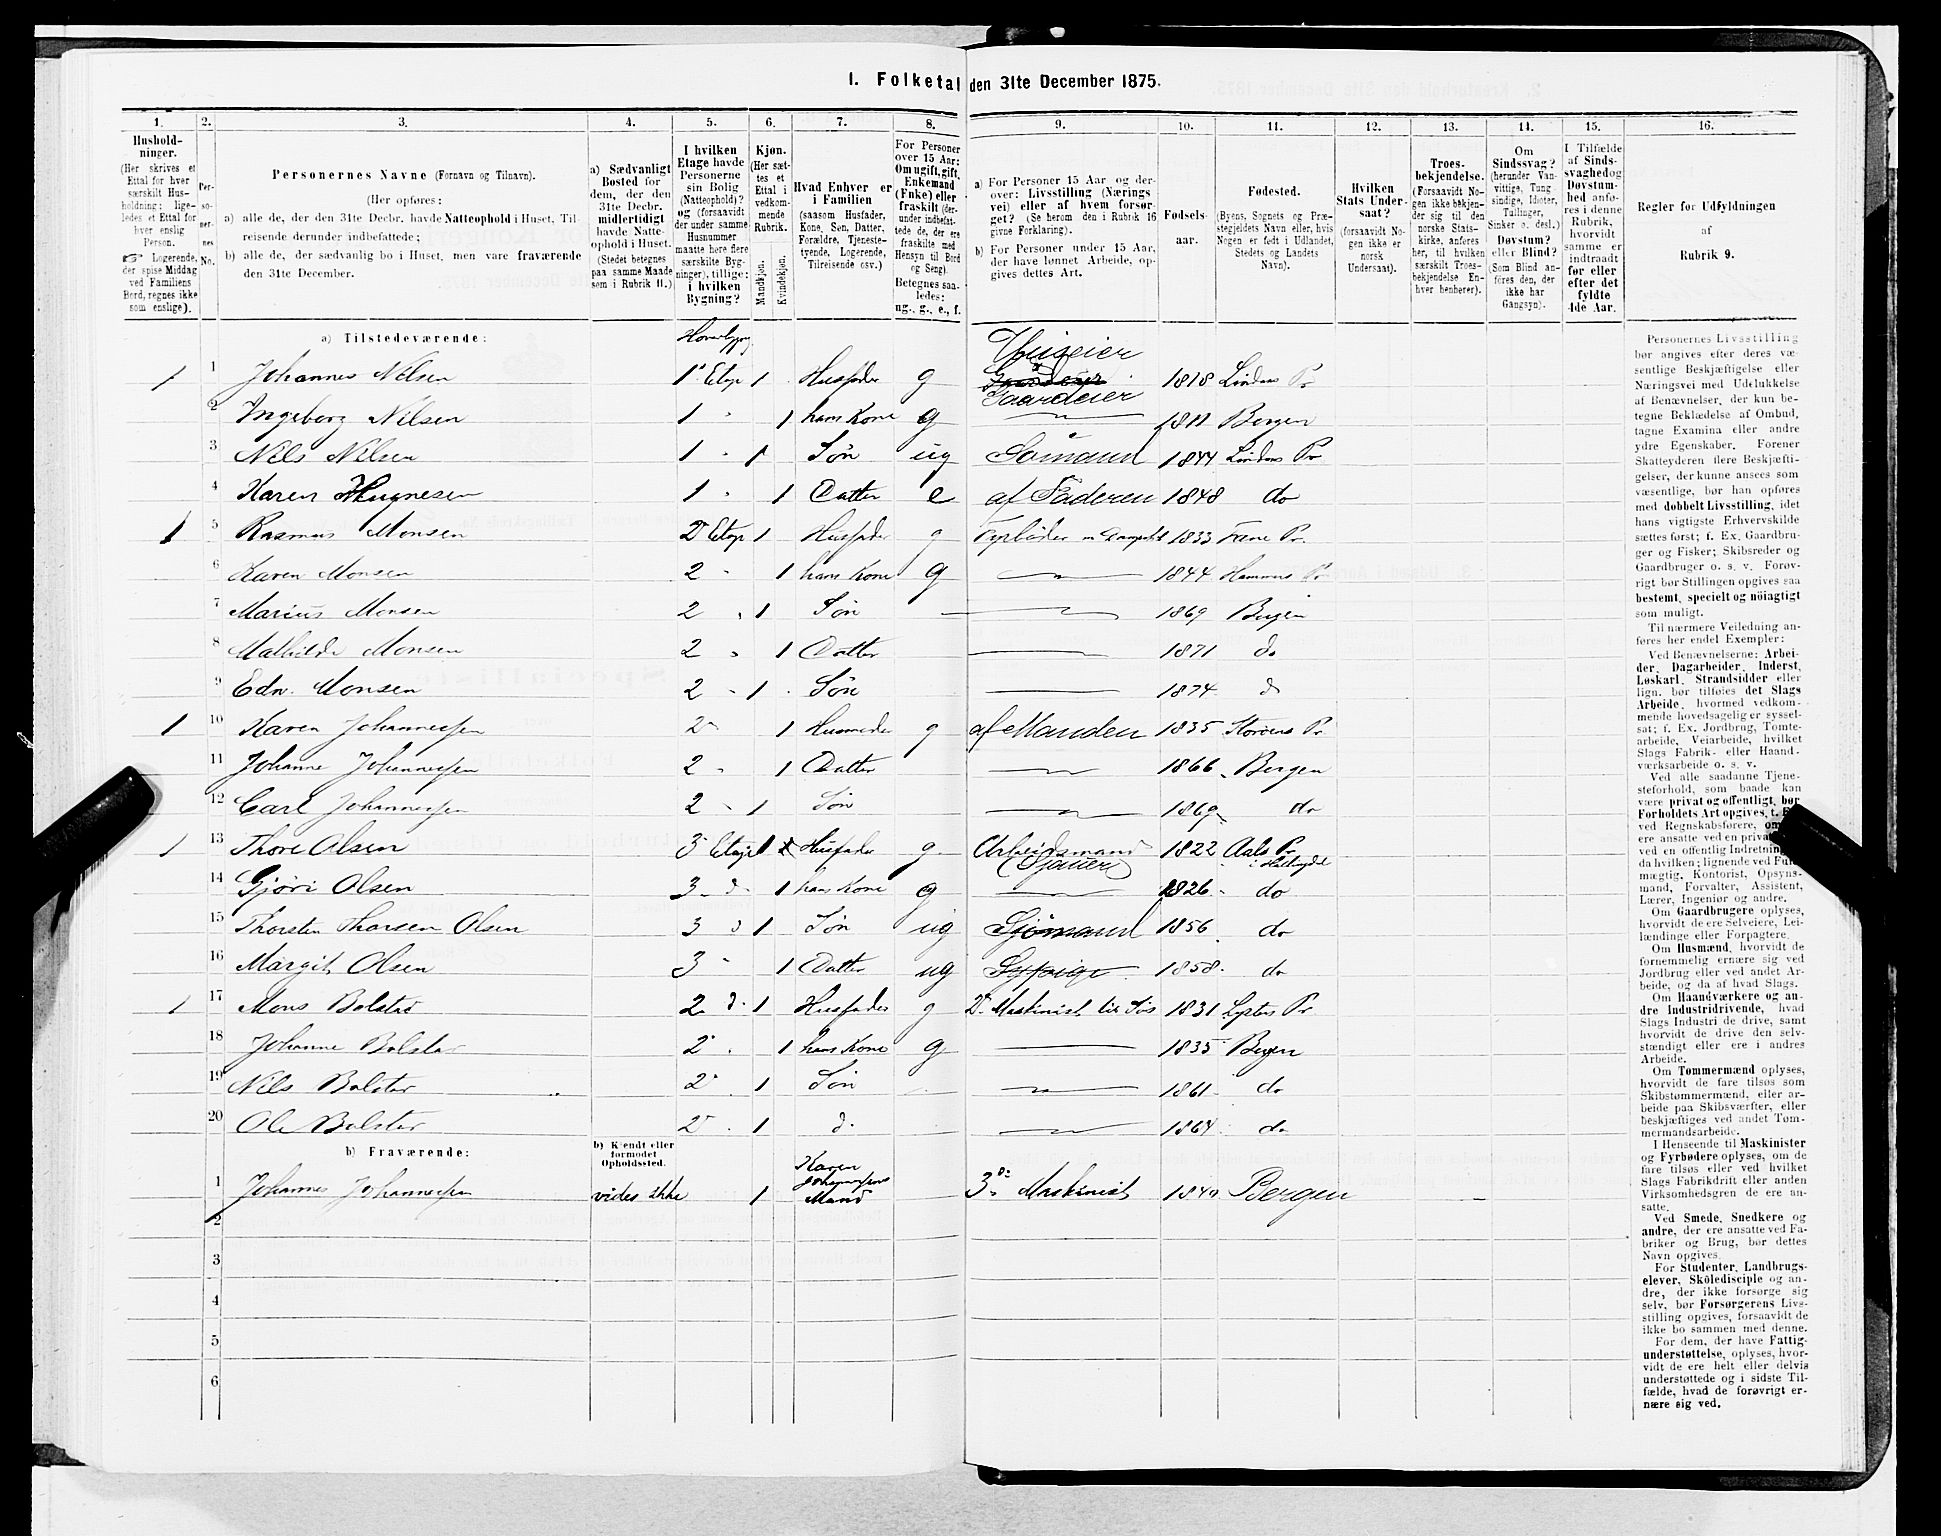 I. Folketal den 31te December 1875.
1. 2. 3. 4. 5. 6. 7. 8. 9. 10. 11. 12. 13. 14. 15. 16.
Hushold-
ninger.
(Her skrives et
Ettal for hver
særskilt Hus-
holdning; lige-
ledes et Ettal for
hver enslig
Person.
☞ Logerende,
der spise Middag
ved Familiens
Bord, regnes ikke
som enslige).
Per-
so-
ner-
nes
No.
Personernes Navne (Fornavn og Tilnavn).
(Her opføres:
a) alle de, der den 31te Decbr. havde Natteophold i Huset, Til-
reisende derunder indbefattede;
b) alle de, der sædvanlig bo i Huset, men vare fraværende
den 31te December.
a) Sædvanligt
Bosted for
dem, der den
31te Decbr.
midlertidigt
havde Natte-
ophold i Huset.
(Stedet betegnes
paa samme Maade
som i Rubrik 11.)
I hvilken
Etage havde
Personerne
sin Bolig
(Natteophold)?
og (forsaavidt
der under samme
Husnummer
maatte høre flere
særskilte Byg-
ninger), tillige:
i hvilken
Bygning?
Kjøn.
(Her sæt-
tes et
Ettal i
vedkom-
mende
Rubrik.
Mandkjøn.
Kvindekjøn.
Hvad Enhver er
i Familien
(saasom Husfader,
Kone, Søn, Datter,
Forældre, Tjeneste-
tyende, Logerende,
Tilreisende osv.)
For Personer
over 15 Aar:
Om ugift, gift,
Enkemand
(Enke) eller
fraskilt (der-
under indbefat-
tede de, der ere
fraskilte med
Hensyn til Bord
og Seng).
Betegnes saa-
ledes:
ug., g., e., f.
a) For Personer 15 Aar og der-
over: Livsstilling (Nærings
vei) eller af hvem forsør-
get? (Se herom den i Rubrik 16
givne Forklaring).
b) For Personer under 15 Aar,
der have lønnet Arbeide, op-
gives dettes Art.
Fødsels-
aar.
Fødested.
(Byens, Sognets og Præ-
stegjeldets Navn eller, hvis
Nogen er født i Udlandet,
Stedets og Landets
Navn).
Hvilken
Stats Under-
saat?
(forsaavidt No-
gen ikke er
norsk
Undersaat).
Troes-
bekjendelse.
(Forsaavidt No-
gen ikke bekjen-
der sig til den
norske Stats-
kirke, anføres
her, til hvilken
særskilt Troes-
bekjendelse En-
hver henhører).
Om
Sindssvag?
(herunder Van-
vittige, Tung-
sindige, Idioter,
Tullinger,
Sinker o. desl.)
Døvstum?
eller Blind?
(Som Blind an-
føres den, der
ikke har
Gangsyn).
I Tilfælde
af Sinds-
svaghed og
Døvstum-
hed anfø-
res i denne
Rubrik,
hvorvidt
samme er
indtraadt
før eller
efter det
fyldte
4de Aar.
Regler for Udfyldningen
af
Rubrik 9.
a) Tilstedeværende:
1 1 Johannes Nilsen 1ª Etage 1 Husfader g Huseier Gaardeier 1818 Lindaas Pr
2 Ingeborg Nilsen 1 " 1 hans Kone g 1811 Bergen
3 Nils Nilsen 1 " 1 Søn ug Sömand 1844 Lindaas Pr
4 Karen Magnesen 1 " 1 Datter e af Faderen 1848 do
1 5 Rasmus Monsen 2 Etage 1 Husfader g Fyrböder 1833 Fane Pr.
6 Karen Monsen 2 " 1 hans Kone g 1844 Hammers Pr
7 Marius Monsen 2 " 1 Søn 1869 Bergen
8 Mathilde Monsen 2 " 1 Datter 1871 do
9 Edv. Monsen 2 " 1 Søn 1874 d
1 10 Karen Johannessen 2 1 Husmoder g af Manden 1835 Pr
11 Johanne Johannessen 2 " 1 Datter 1866 Bergen
12 Carl Johannessen 2 " 1 Søn 1869 do
1 13 Thore Olsen 3 Etage 1 Husfader g. Arbeidsmand (Sjauer) 1822 Aals Pr i Hallingdal
14 Gjöri Olsen 3 d 1 hans Kone g 1826 do
15 Thorsten Thorsen Olsen 3 d 1 Søn ug Sjömand 1856 do
16 Margit Olsen 3 " 1 Datter ug Sypige 1858 do
1 17 Mons Bolstad 2 d. 1 Husfader g 2. Maskinist til Søs 1831 Lysters Pr
18 Johanne Bolstad 2 " 1 hans Kone g 1835 Bergen
19 Nils Bolstad 2 " 1 Søn 1861 do
20 Ole Bolstad 2 " 1 d. 1864 do
b) Fraværende:
b) Kjendt eller
formodet
Opholdssted.
1 Johannes Johannessen vides ikke 1 Karen Johannessens Mand 3d: Maskinist 1840 Bergen
2
3
4
5
6
Personernes Livsstilling
bør angives efter deres væ-
sentlige Beskjæftigelse eller
Næringsvei med Udelukkelse
af Benævnelser, der kun be-
tegne Beklædelse af Ombud,
tagne Examina eller andre
ydre Egenskaber. Forener
Skatteyderen flere Beskjæfti-
gelser, der kunne ansees som
væsentlige, bør han opføres
med dobbelt Livsstilling, idet
hans vigtigste Erhvervskilde
sættes først; f. Ex. Gaardbru-
ger og Fisker; Skibsreder og
Gaardbruger o. s. v. Forøv-
rigt bør Stillingen opgives saa
bestemt, specielt og nöiagtigt
som muligt.
Til nærmere Veiledning an-
føres her endel Exempler:
Ved Benævnelserne: Arbei-
der, Dagarbeider, Inderst,
Løskarl, Strandsidder eller
lign. bør tilføies det Slags
Arbeide, hvormed vedkom-
mende hovedsagelig er syssel-
sat; f. Ex. Jordbrug, Tomte-
arbeide, Veiarbeide, hvilket
Slags Fabrik- eller Haand-
værksarbeide o. s. v.
Ved alle saadanne Tjene-
steforhold, som baade kan
være privat og offentligt, bør
Forholdets Art opgives, t. E
ved Regnskabsførere, om
ere ansatte ved en priva
ved en offentlig Indretning
da hvilken; lignende ved Ful
mægtig, Kontorist, Opsyns-
mand, Forvalter, Assistent,
Lærer, Ingeniør og andre.
Om Gaardbrugere oplyses,
hvorvidt de ere Selveiere, Lei-
lændinge eller Forpagtere.
Om Husmænd, hvorvidt de
fornemmelig ernære sig ved
Jordbrug eller ved andet Ar-
beide, og da af hvad Slags.
Om Haandværkere og an-
dre Industridrivende, hvad
Slags Industri de drive, samt
hvorvidt de drive den selv-
stændigt eller ere i andres
Arbeide.
Om Tømmermænd oplyses,
hvorvidt de fare tilsøs som
Skibstømmermænd, eller ar-
beide paa Skibsværfter, eller
beskjæftiges ved andet Tøm-
mermandsarbeide.
I Henseende til Maskinister
og Fyrbødere oplyses, om de
fare tilsøs eller ved hvilket
Slags Fabrikdrift eller anden
Virksomhedsgren de ere an-
satte.
Ved Smede, Snedkere og
andre, der ere ansatte ved Fa-
briker og Brug, bør dettes
Navn opgives.
For Studenter, Landbrugs-
elever, Skölediseiple og an-
dre, der ikke forsørge sig
selv, bør Forsørgerens Livs-
stilling opgives, forsaavidt de
ikke bo sammen med denne.
For dem, der have Fattig-
understøttelse, oplyses, hvor-
vidt de ere helt eller delvis
understøttede og i sidste Til-
fælde, hvad de forøvrigt er-
nære sig ved.